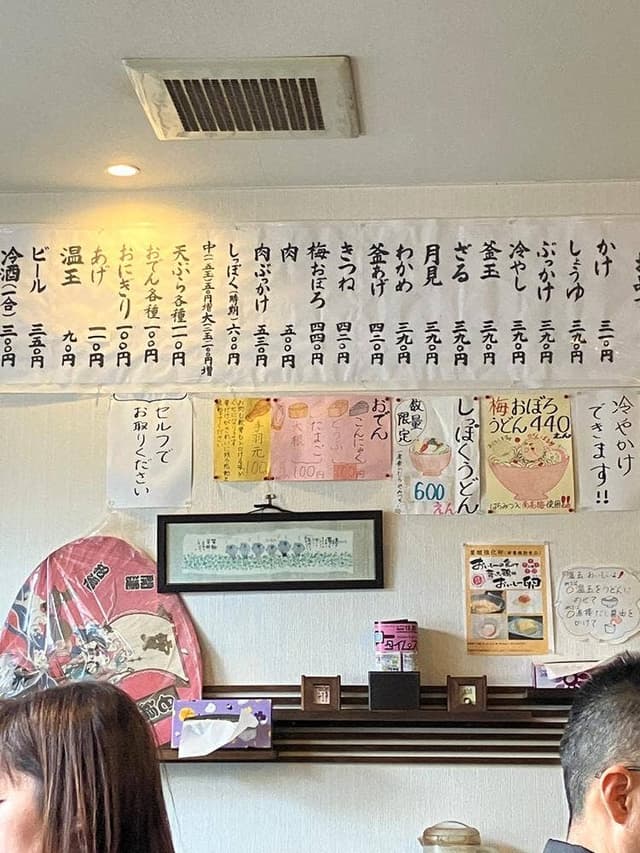 かけ 三一〇円
しょうゆ 三九〇円
ぶっかけ 三九〇円
冷やし 三九〇円
釜玉 三九〇円
ざる 三九〇円
月見 三九〇円
わかめ 三九〇円
釜あげ 四二〇円
きつね 四二〇円
梅おぼろ 四四〇円
肉 五〇〇円
肉ぶっかけ 五三〇円
しっぽく(時期) 六〇〇円
天ぷら各種 一一〇円
おでん各種 一〇〇円
おにぎり 一〇〇円
あげ 一一〇円
温玉 九〇円
ビール 三五〇円
冷酒(一合) 三〇〇円
冷やかけ
できます!!
梅おぼろ
うどん440えん
はちみつ入南高梅使用!!
しっぽくうどん
数量
限定
600
えん
おでん
こんにゃく
とうふ
たまご
大根
100円
100円
手羽元
100
セルフで
お取りください
おいしい卵
温玉おいしいよ!
温玉をうどんに
のせて
直接だし醤油を
かけて